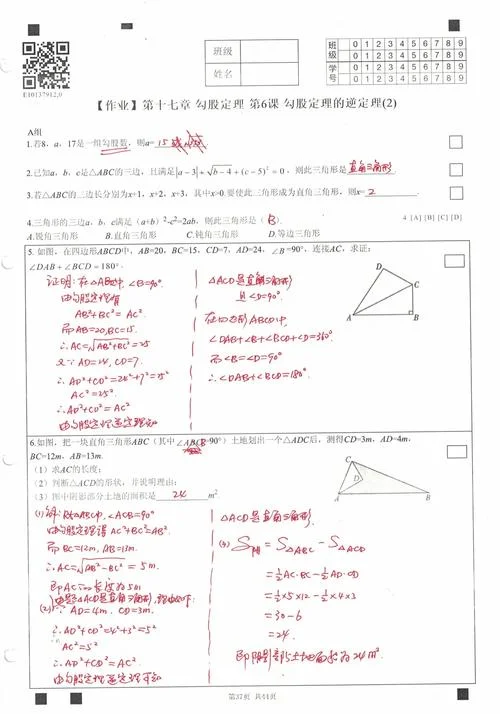 E10137912,0
班级
姓名
班级 0 1 2 3 4 5 6 7 8 9
0 1 2 3 4 5 6 7 8 9
学号 0 1 2 3 4 5 6 7 8 9
0 1 2 3 4 5 6 7 8 9
【作业】第十七章 勾股定理 第6课 勾股定理的逆定理(2)
A组
1.若8，a，17是一组勾股数，则a= 15
2.已知a，b，c是△ABC的三边，且满足|a-3|+√b-4+(c-5)²=0，则此三角形是 直角三角形
3.若△ABC的三边长分别为x+1，x+2，x+3，其中x>0.要使此三角形成为直角三角形，则x= 2
4.三角形的三边a，b，c满足（a+b）²-c²=2ab，则此三角形是（ B ）. 4 [A] [B] [C] [D]
A.锐角三角形 B.直角三角形 C.钝角三角形 D.等边三角形
5. 如图，在四边形ABCD中，AB=20，BC=15，CD=7，AD=24，∠B=90°，连接AC，求证：
∠DAB+∠BCD=180°.
D
C
A
B
证明：在△ABC中，∠B=90°
由勾股定理有
AB²+BC²=AC².
而AB=20,BC=15.
∴AC=√AB²+BC²=25
又∵AD=24,CD=7.
∴AD²+CD²=24²+7²=25²
AC²=25².
∴AD²+CD²=AC²
由勾股定理逆定理知
△ACD是直角三角形
且∠D=90°.
在四边形ABCD中,
∠DAB+∠B+∠BCD+∠D=360°
而∠B=∠D=90°
∴∠DAB+∠BCD=180°.
6.如图，把一块直角三角形ABC（其中∠ACB=90°）土地划出一个△ADC后，测得CD=3m，AD=4m，
BC=12m，AB=13m.
（1）求AC的长度；
（2）判断△ACD的形状，并说明理由；
（3）图中阴影部分土地的面积是 24 m²
C
D
A
B
(1)解:Rt△ABC中, ∠ACB=90°
由勾股定理得 AC²+BC²=AB².
而BC=12m, AB=13m.
∴AC=√AB²-BC²=5m.
即AC的长度为5m
(2)∵AD=4m, CD=3m.
∴AD²+CD²=4²+3²=5²
AC²=5²
∴AD²+CD²=AC²
由勾股定理逆定理可知
△ACD是直角三角形.
S阴=S△ABC-S△ACD
=½AC·BC-½AD·CD
=½×5×12-½×4×3
=30-6
=24.
即阴影部分土地面积为24m².
第37页 共44页